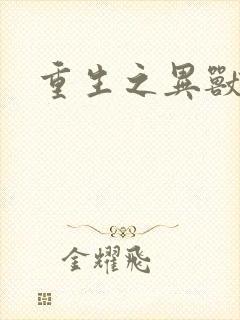 重生之異獸
金耀飛